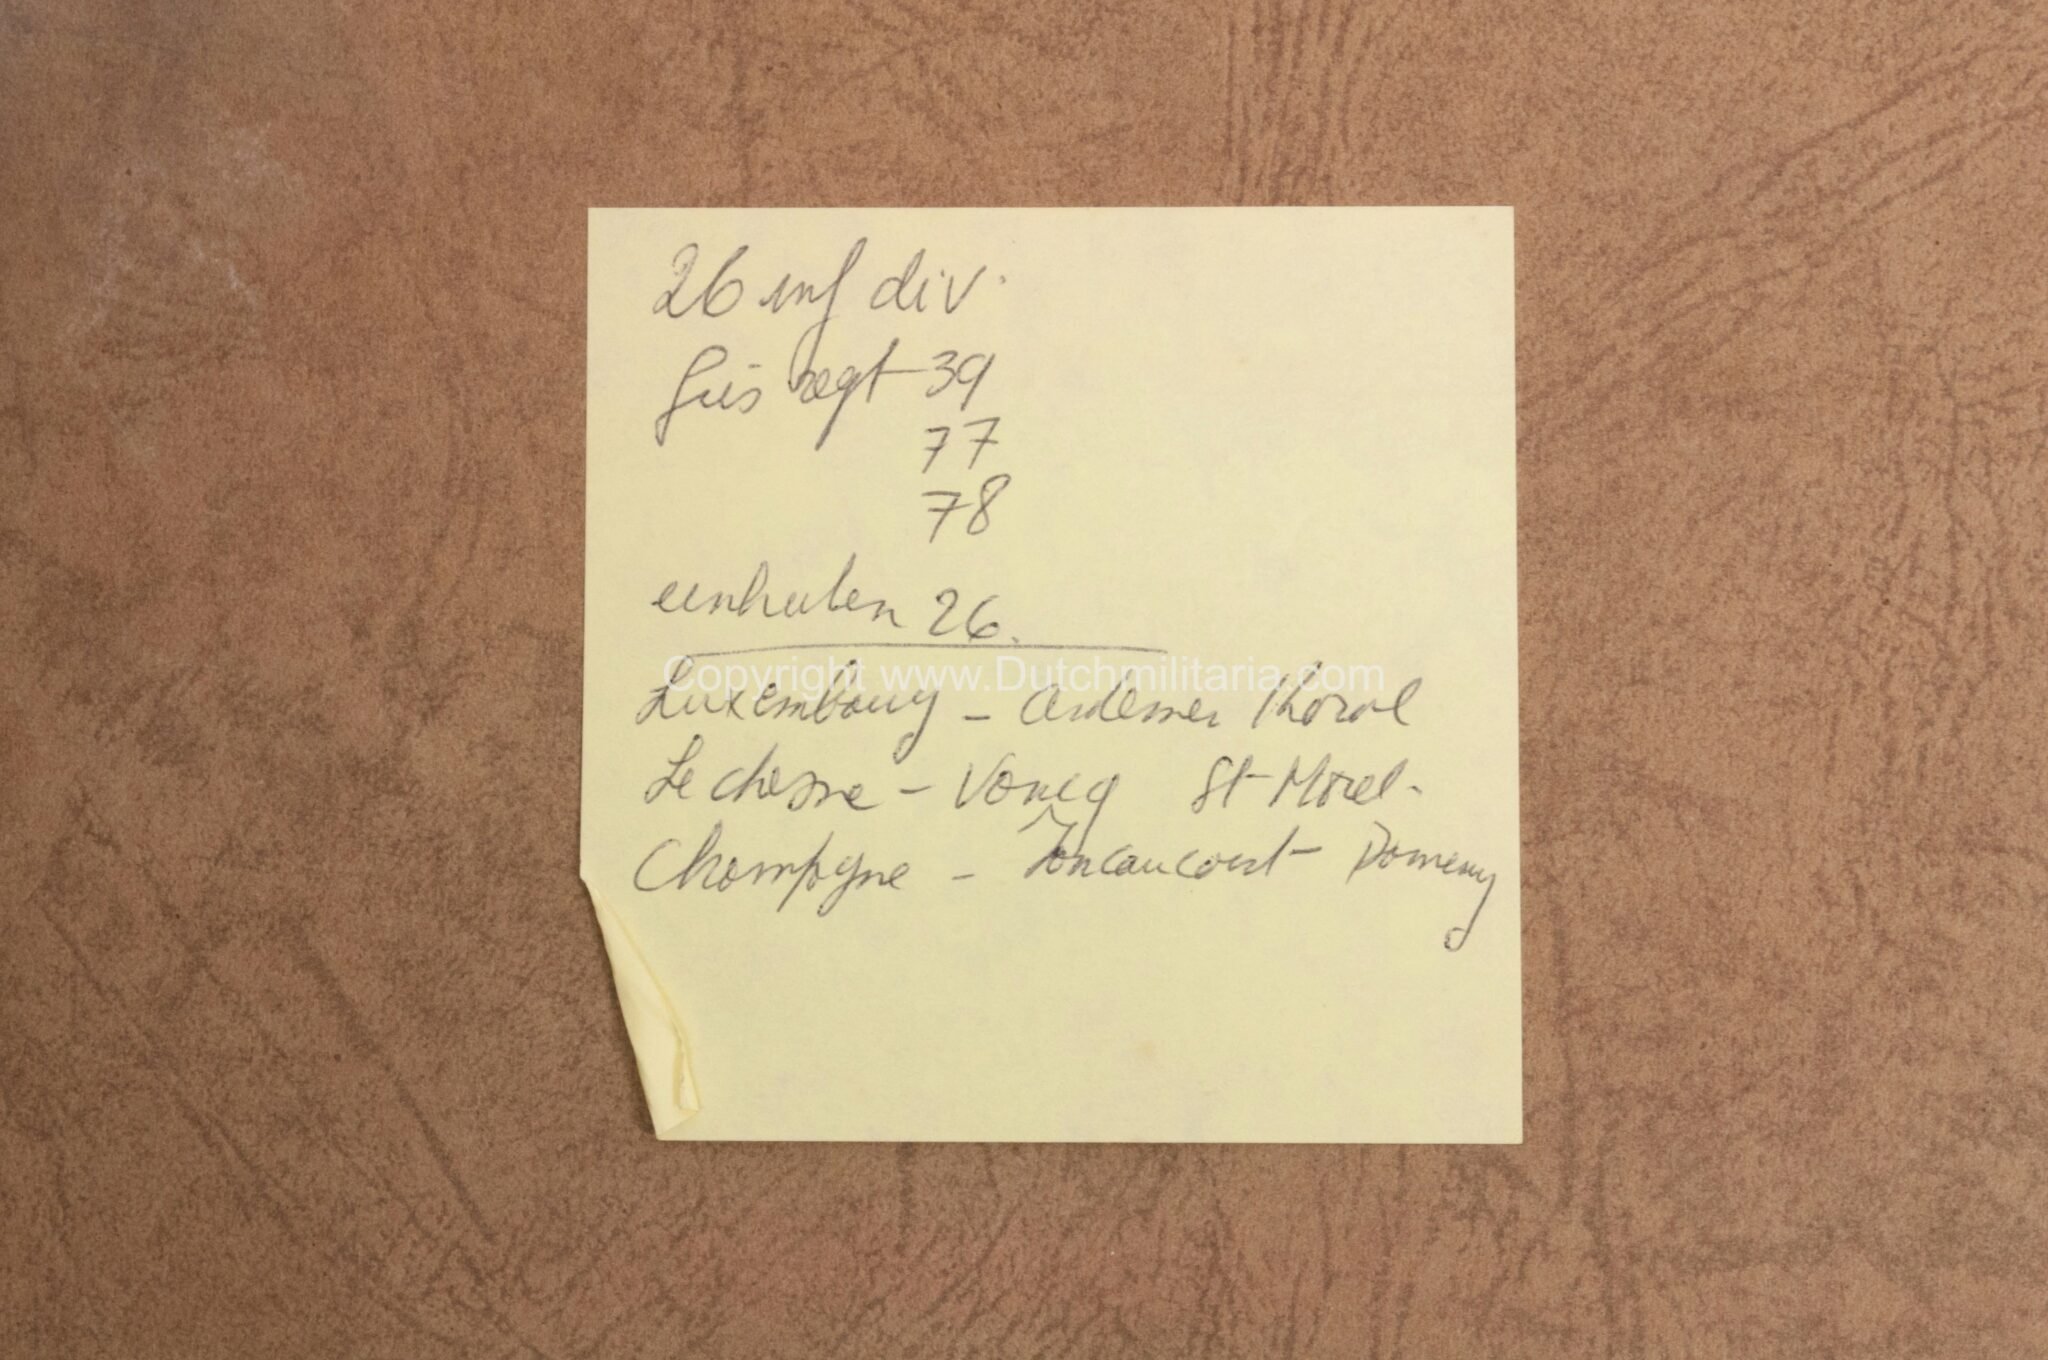 26 inf div.
Fus regt 39
77
78
eenheden 26.
Copyright www.Dutchmilitaria.com
Luxembourg - Ardennen
Le chesne - Voncq St Morel -
Champagne -